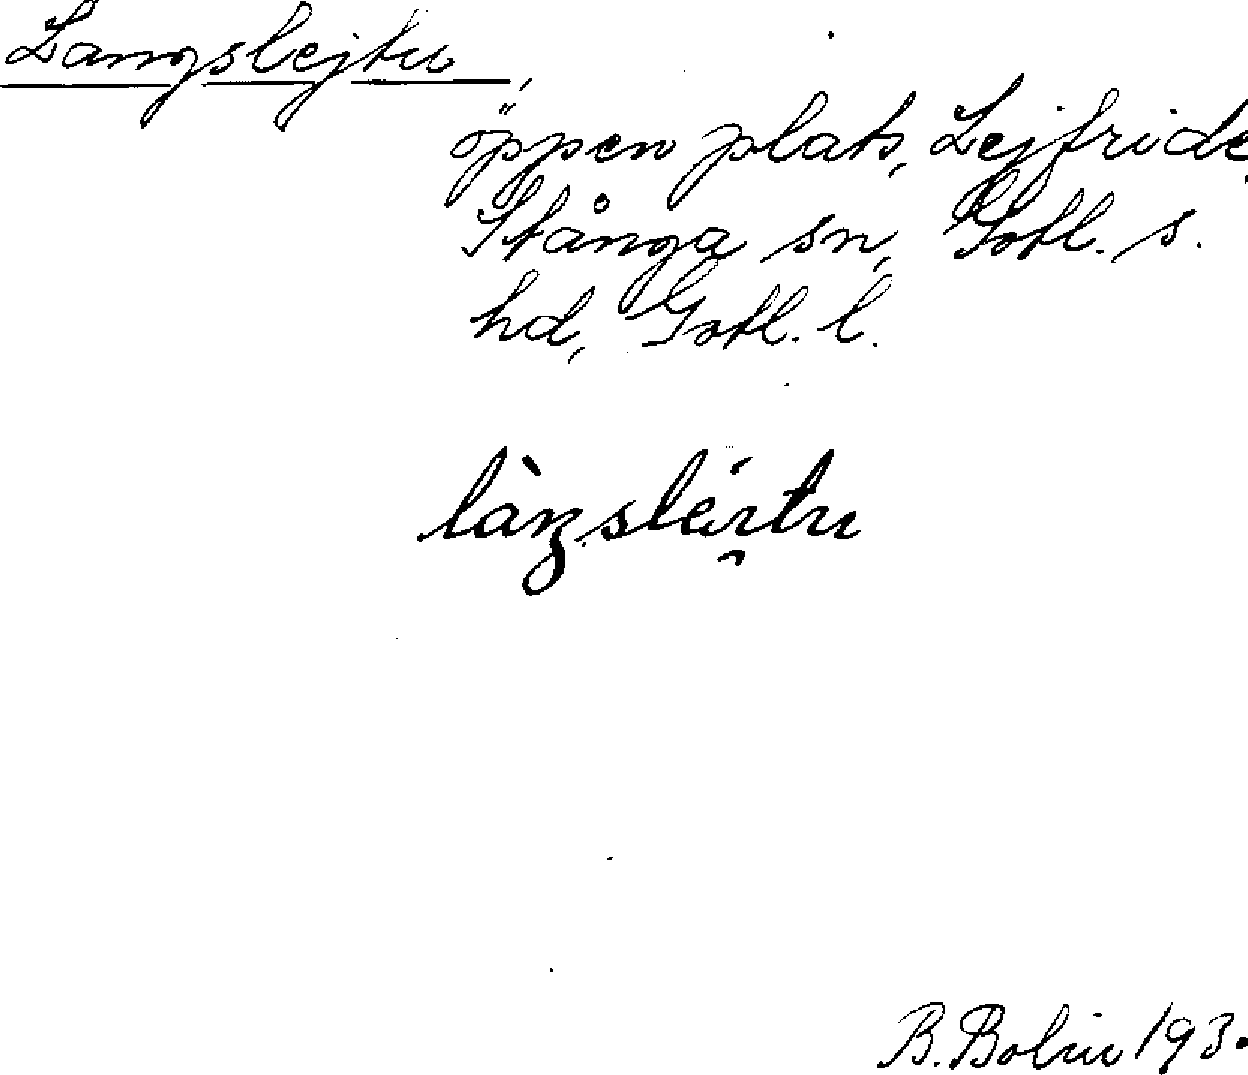 Langslejtu,
öppen plats, Lejfride,
Stånga sn, Gotl. s.
hd, Gotl. l.
làŋsléi̯tu
B. Bolin 193.